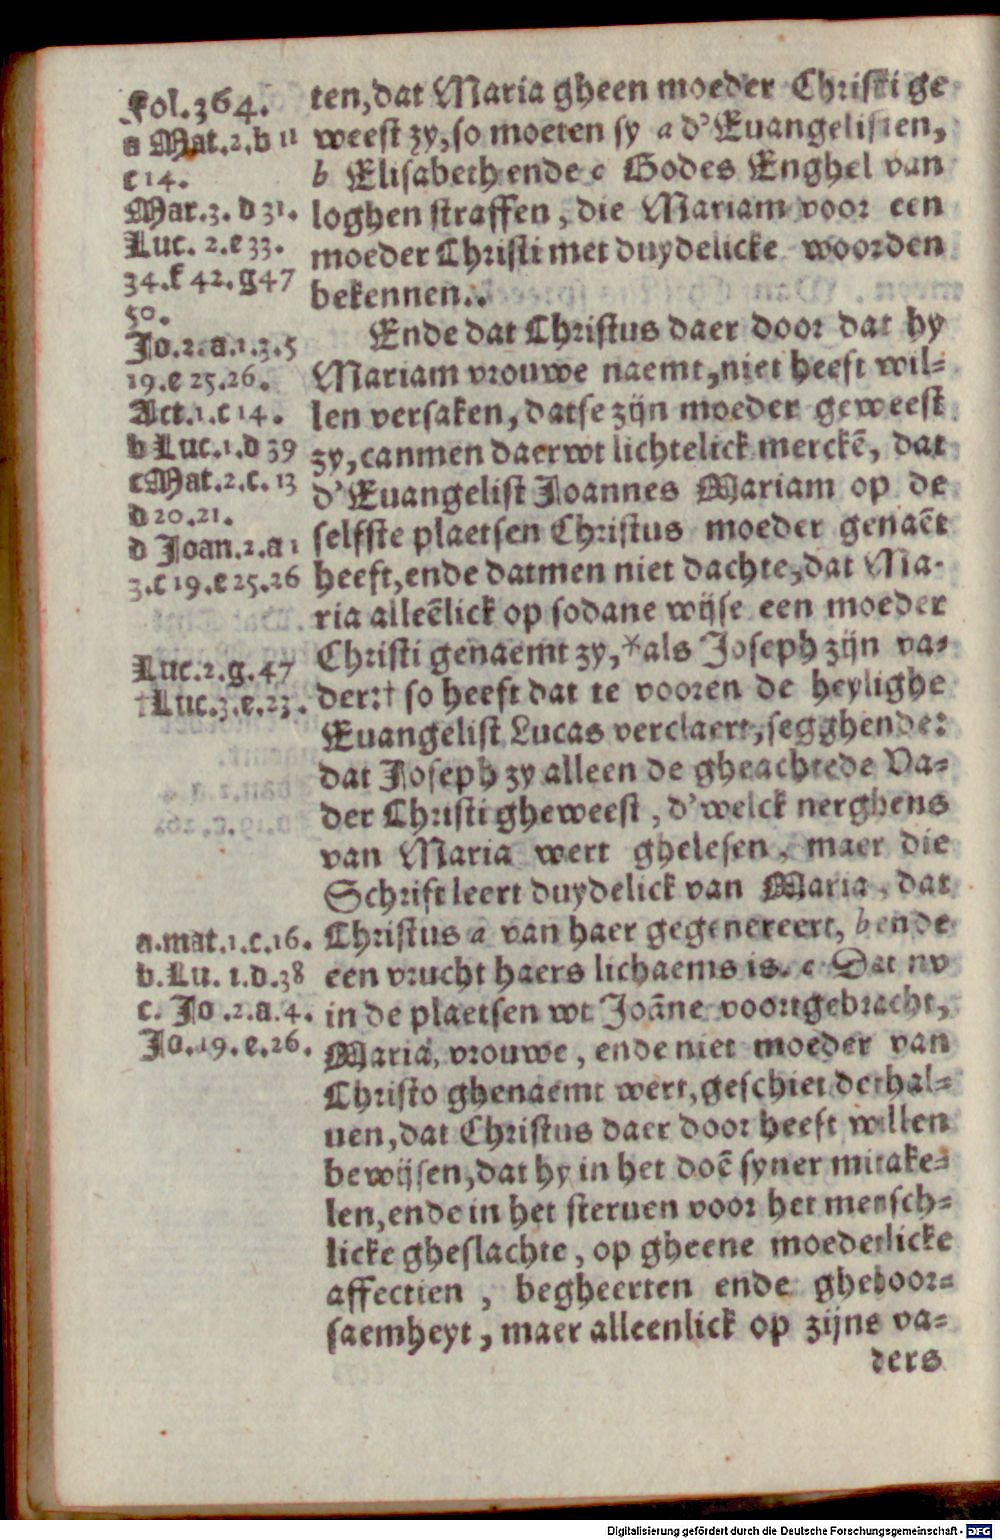 Fol.364.
a Mat.2.b 11
c 14.
Mar.3. d 31.
Luc. 2.e 33.
34.f 42.g47
50.
Jo.2.a.1.3.5
19.e 25.26.
Act.1.c 14.
b Luc.1.d 39
c Mat.2.c. 13
d 20.21.
d Joan.2.a 1
3.c 19.e 25.26
Luc.2.g.47
†Luc.3.e.23.
a.mat.1.c.16.
b.Lu. 1.d.38
c. Jo .2.a.4.
Jo.19.e.26.
ten,dat Maria gheen moeder Christi ge
weest zy,so moeten sy a d'Euangelisten,
b Elisabeth ende c Godes Enghel van
loghen straffen, die Mariam voor een
moeder Christi met duydelicke woorden
bekennen..
Ende dat Christus daer door dat hy
Mariam vrouwe naemt,niet heeft wil-
len versaken, datse zijn moeder geweest
zy,canmen daerwt lichtelick merckē, dat
d'Euangelist Joannes Mariam op de
selfste plaetsen Christus moeder genaēt
heeft,ende datmen niet dachte,dat Ma-
ria alleēlick op sodane wijse een moeder
Christi genaemt zy,*als Joseph zijn va-
der:† so heeft dat te vooren de heylighe
Euangelist Lucas verclaert,segghende:
dat Joseph zy alleen de gheachtede Va-
der Christi gheweest, d'welck nerghens
van Maria wert ghelesen, maer die
Schrift leert duydelick van Maria, dat
Christus a van haer gegenereert, b ende
een vrucht haers lichaems is. c Dat nv
in de plaetsen wt Joāne voortgebracht,
Maria, vrouwe, ende niet moeder van
Christo ghenaemt wert,geschiet derhal-
uen,dat Christus daer door heeft willen
bewijsen,dat hy in het doē syner mirake-
len,ende in het steruen voor het mensch-
licke gheslachte, op gheene moederlicke
affectien, begheerten ende ghehoor-
saemheyt, maer alleenlick op zijns va-
ders
Digitalisierung gefördert durch die Deutsche Forschungsgemeinschaft - DFG